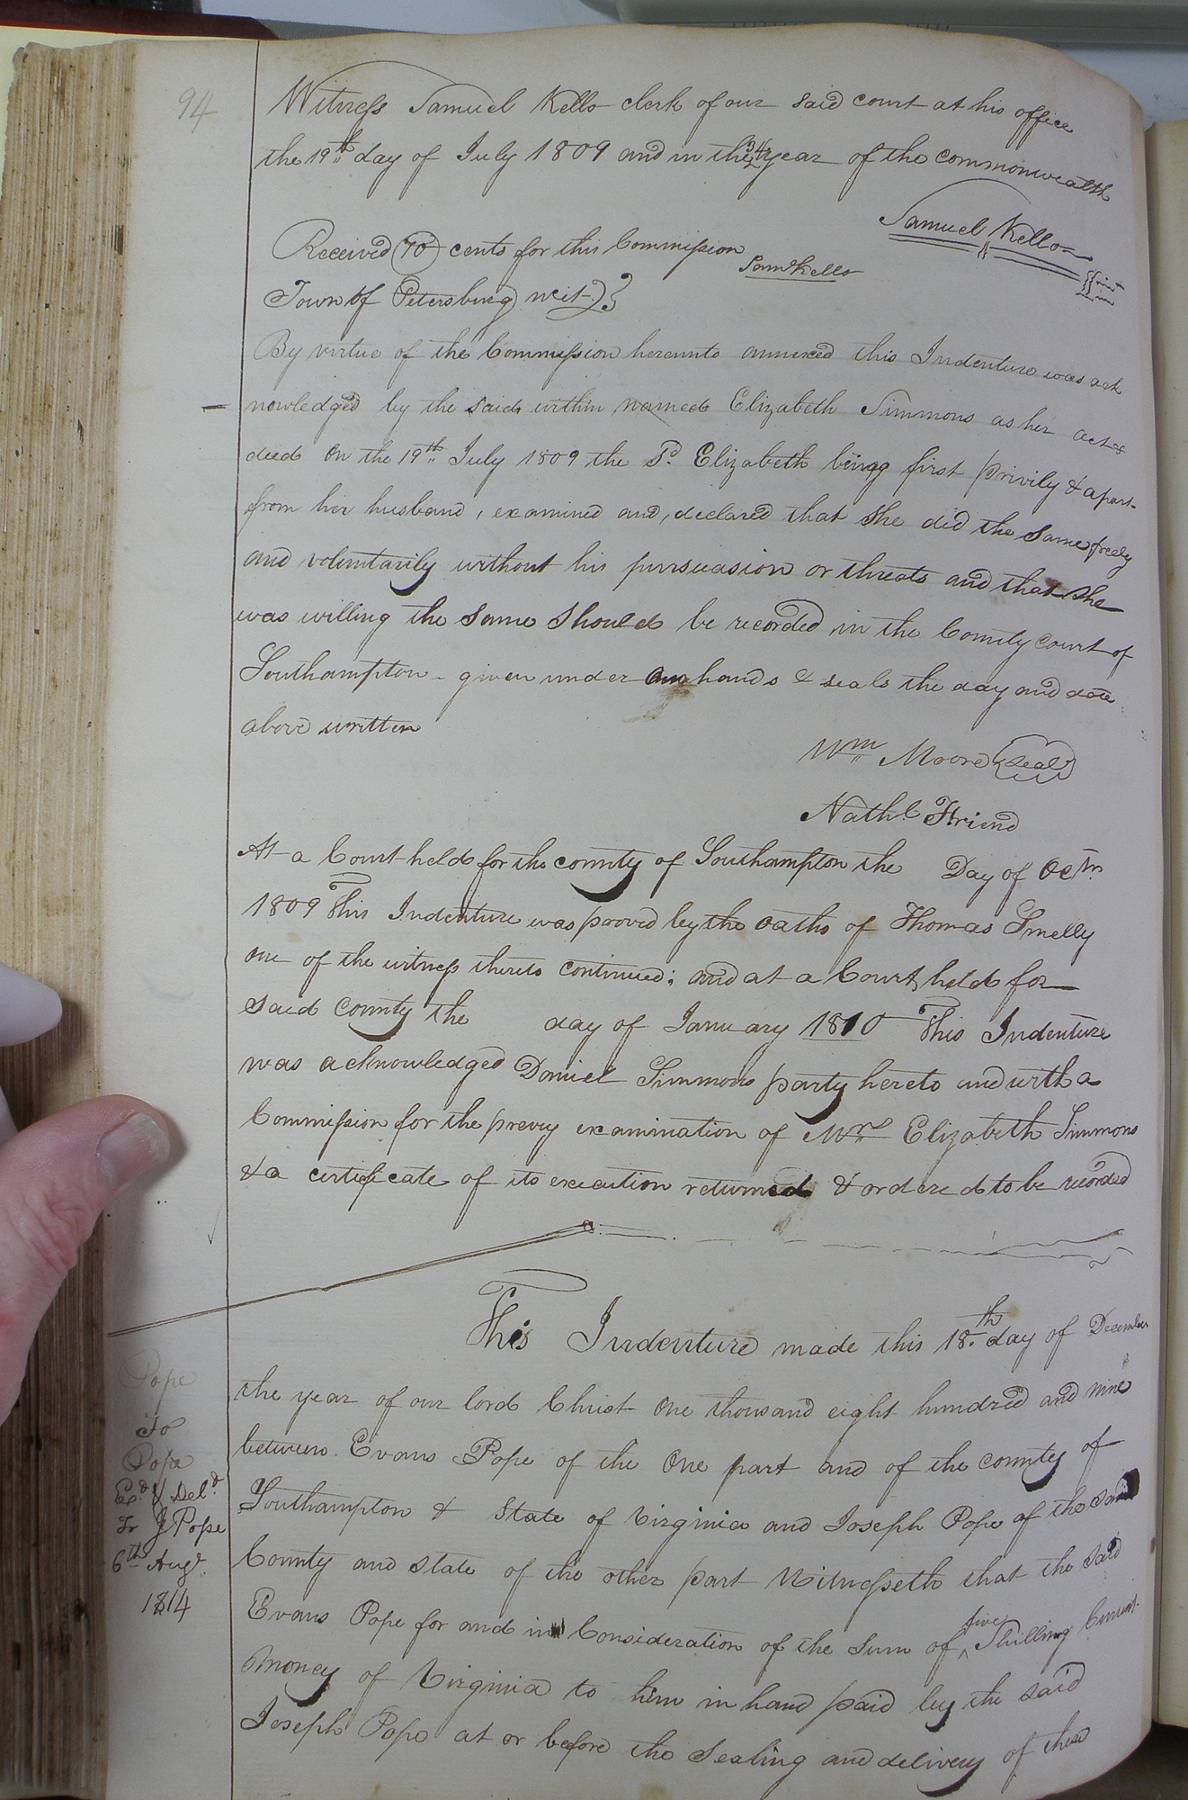 94
Witness Samuel Kello clerk of our said court at his office
the 19th day of July 1809 and in the 34 year of the commonwealth
Samuel Kello
Received 70 cents for this Commission
Saml Kello
Town of Petersburg wit
By virtue of the Commission hereunto annexed this Indenture was ack
nowledged by the said within named Elizabeth Simmons as her act &
deed on the 19th July 1809 the Sd. Elizabeth being first privily & apart
from her husband, examined and, declared that She did the same freely
and voluntarily without his pursuasion or threats and that she
was willing the same should be recorded in the County court of
Southampton - given under our hands & seals the day and date
above written
Wm Moore (Seal)
Nathl Friend
At a Court held for the county of Southampton the Day of Octr
1809 This Indenture was proved by the oaths of Thomas Smelly
one of the witness thereto continued; and at a Court held for
said county the day of January 1810 This Indenture
was acknowledged Daniel Simmons party hereto and with a
Commission for the prevy examination of Mrs Elizabeth Simmons
& a certificate of its execution returned & ordered to be recorded
This Indenture made this 18th day of December
the year of our lord Christ one thousand eight hundred and nine
between Evans Pope of the one part and of the county of
Southampton & State of Virginia and Joseph Pope of the said
County and state of the other part Witnesseth that the said
Evans Pope for and in Consideration of the Sum of five Shilling Current
Money of Virginia to him in hand paid by the said
Joseph Pope at or before the Sealing and delivery of these
Pope
To
Pope
Exd & Deld
Jr J Pope
6th Augt
1814